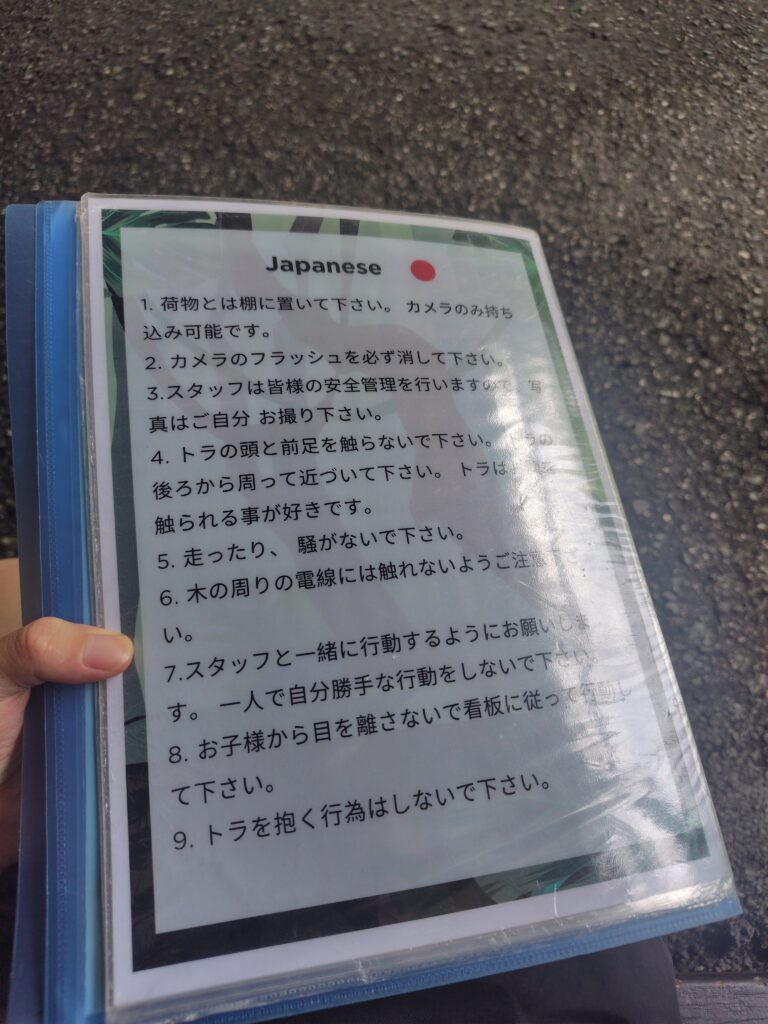 Japanese
1. 荷物とは棚に置いて下さい。 カメラのみ持ち
込み可能です。
2. カメラのフラッシュを必ず消して下さい。
3.スタッフは皆様の安全管理を行いますので、写
真はご自分 お撮り下さい。
4. トラの頭と前足を触らないで下さい。 トラの
後ろから周って近づいて下さい。 トラは
触られる事が好きです。
5. 走ったり、 騒がないで下さい。
6. 木の周りの電線には触れないようご注意
い。
7.スタッフと一緒に行動するようにお願いしま
す。 一人で自分勝手な行動をしないで下さい。
8. お子様から目を離さないで看板に従って行動し
て下さい。
9. トラを抱く行為はしないで下さい。